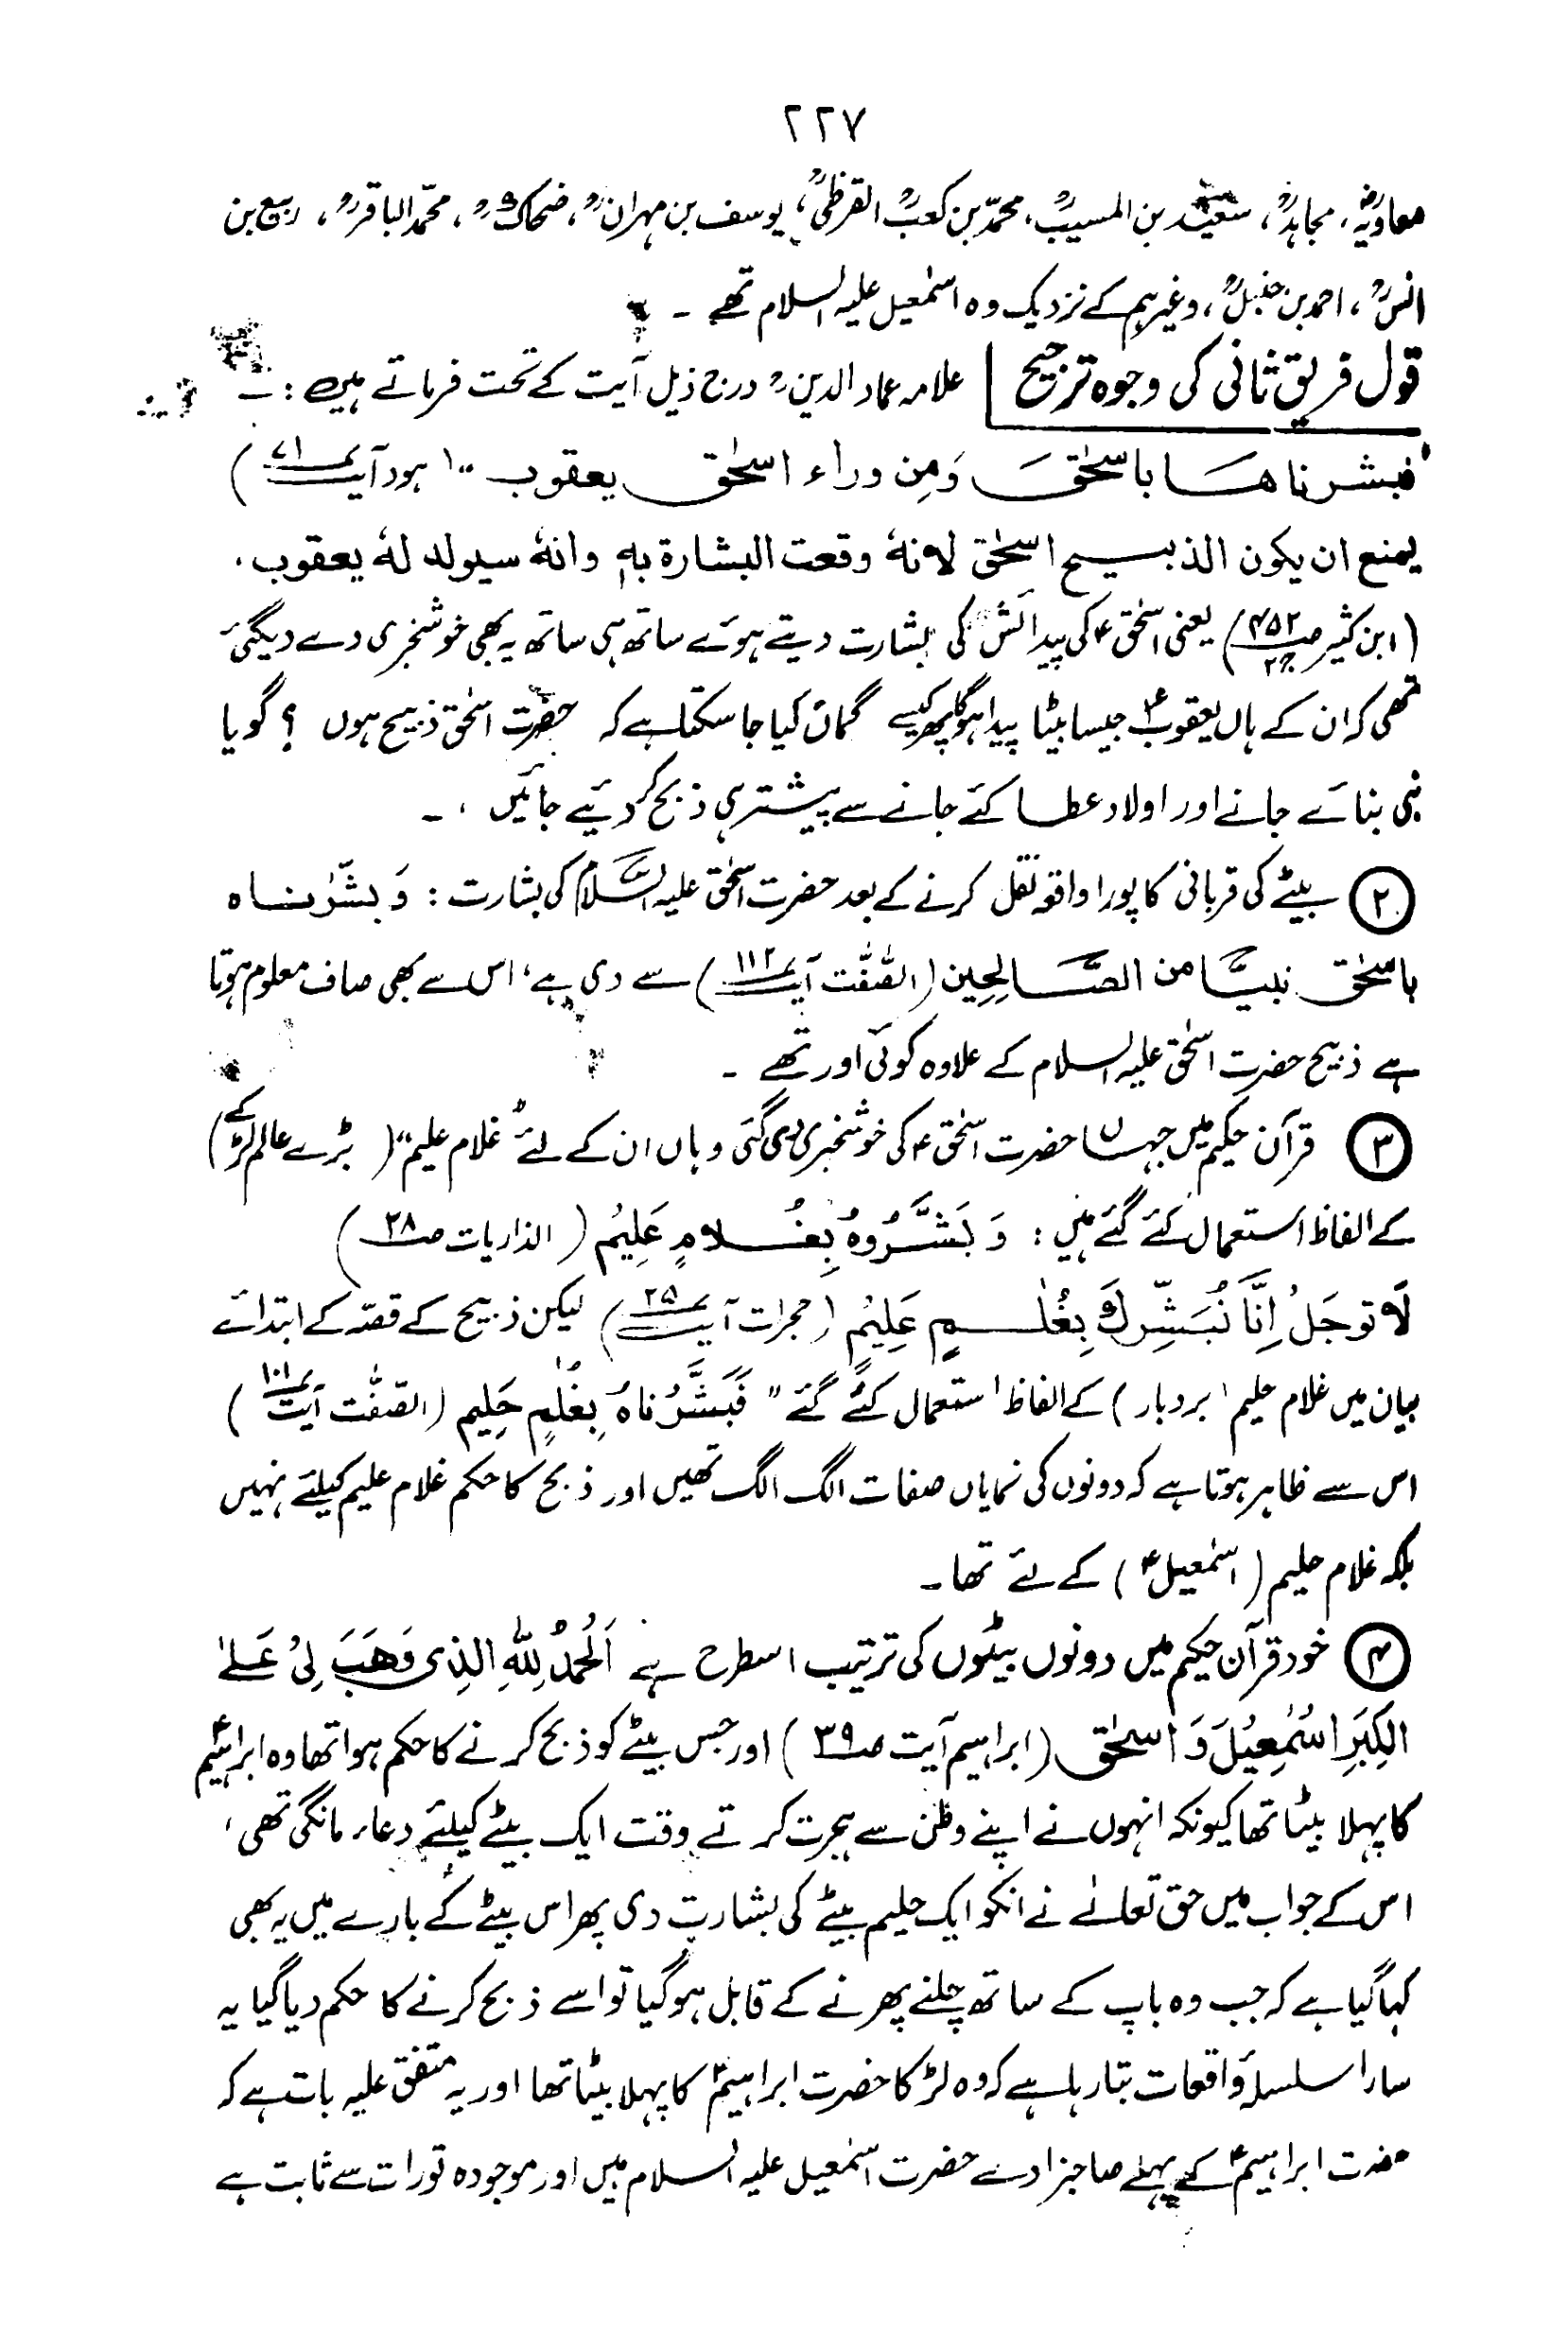 ۲۲۷
معاویہؓ، مجاہدؒ، سعید بن المسیبؒ، محمد بن کعبؒ القرظیؒ، یوسف بن مہرانؒ، ضحاکؒ، محمد الباقرؒ، ربیع بن
انسؒ، احمد بن حنبلؒ، وغیرہم کے نزدیک وہ اسمٰعیل علیہ السلام تھے ۔
قول فریق ثانی کی وجوہ ترجیح | علامہ عماد الدینؒ درج ذیل آیت کے تحت فرماتے ہیں :۔
فبشرناھا باسحٰق وَمِن وراء اسحٰق یعقوب " ( ہود آیت ۷۱ )
یمنع ان یکون الذبیح اسحٰق لانہٗ وقعت البشارۃ بہٖ وانہٗ سیولد لہٗ یعقوب .
( ابن کثیر ص ۴۵۲ ج ۲ ) یعنی اسحٰقؑ کی پیدائش کی بشارت دیتے ہوئے ساتھ ہی ساتھ یہ بھی خوشخبری دے دیگئی
تھی کہ ان کے ہاں یعقوبؑ جیسا بیٹا پیدا ہوگا پھر کیسے گمان کیا جا سکتا ہے کہ حضرت اسحٰق ذبیح ہوں ؟ گویا
نبی بنائے جانے اور اولاد عطا کئے جانے سے پیشتر ہی ذبح کر دئیے جائیں ۔
(۲) بیٹے کی قربانی کا پورا واقعہ نقل کرنے کے بعد حضرت اسحٰق علیہ السّلام کی بشارت : وَ بشّرناہ
باسحٰق نبیًّا من الصّالِحِین ( الصّٰفّٰت آیت ۱۱۲ ) سے دی ہے ، اس سے بھی صاف معلوم ہوتا
ہے ذبیح حضرت اسحٰق علیہ السلام کے علاوہ کوئی اور تھے ۔
(۳) قرآن حکیم میں جہاں حضرت اسحٰقؑ کی خوشخبری دی گئی وہاں ان کے لئے " غلام علیم " ( بڑے عالم لڑکے )
کے الفاظ استعمال کئے گئے ہیں : وَ بَشَّرُوہُ بِغُلامٍ عَلِیْمُ ( الذاریات ص ۲۸ )
لَا توجَلْ اِنَّا نُبَشِّرُكَ بِغُلٰمٍ عَلِیْمُ ( حجرات آیت ۲۵ ) لیکن ذبیح کے قصّہ کے ابتدائے
بیان میں غلام حلیم ( بردبار ) کے الفاظ استعمال کئے گئے " فَبَشَّرْناہُ بِغُلٰمٍ حَلِیم ( الصّٰفّٰت آیت ۱۰۱ )
اس سے ظاہر ہوتا ہے کہ دونوں کی نمایاں صفات الگ الگ تھیں اور ذبح کا حکم غلام علیم کیلئے نہیں
بلکہ غلام حلیم ( اسمٰعیلؑ ) کے لئے تھا ۔
(۴) خود قرآن حکیم میں دونوں بیٹوں کی ترتیب اسطرح ہے اَلْحَمْدُ لِلّٰہِ الذِی وَھَبَ لِیْ عَلےٰ
الکِبَرِ اسْمٰعِیْلَ وَ اسحٰق ( ابراہیم آیت ص ۳۹ ) اور جس بیٹے کو ذبح کرنے کا حکم ہوا تھا وہ ابراہیمؑ
کا پہلا بیٹا تھا کیونکہ انہوں نے اپنے وطن سے ہجرت کرتے وقت ایک بیٹے کیلئے دعاء مانگی تھی ،
اس کے جواب میں حق تعالےٰ نے انکو ایک حلیم بیٹے کی بشارت دی پھر اس بیٹے کے بارے میں یہ بھی
کہا گیا ہے کہ جب وہ باپ کے ساتھ چلنے پھرنے کے قابل ہو گیا تو اسے ذبح کرنے کا حکم دیا گیا یہ
سارا سلسلۂ واقعات بتا رہا ہے کہ وہ لڑکا حضرت ابراہیمؑ کا پہلا بیٹا تھا اور یہ متفق علیہ بات ہے کہ
حضرت ابراہیمؑ کے پہلے صاحبزادے حضرت اسمٰعیل علیہ السلام ہیں اور موجودہ تورات سے ثابت ہے